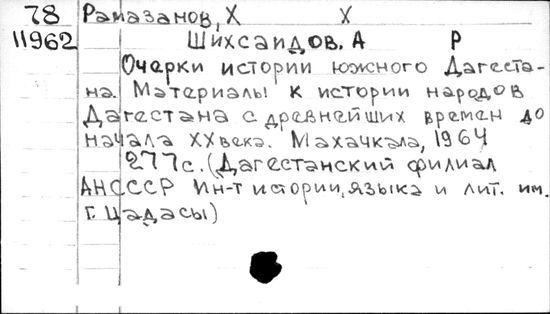 78 Рамазанов, Х Х
11962 Шихсаидов. А Р
Очерки истории южного Дагеста-
на. Материалы к истории народов
Дагестана с древнейших времен до
начала XX века. Махачкала, 1964
277с. (Дагестанский филиал
АНСССР Ин-т истории, языка и лит. им.
Г. Цадасы)